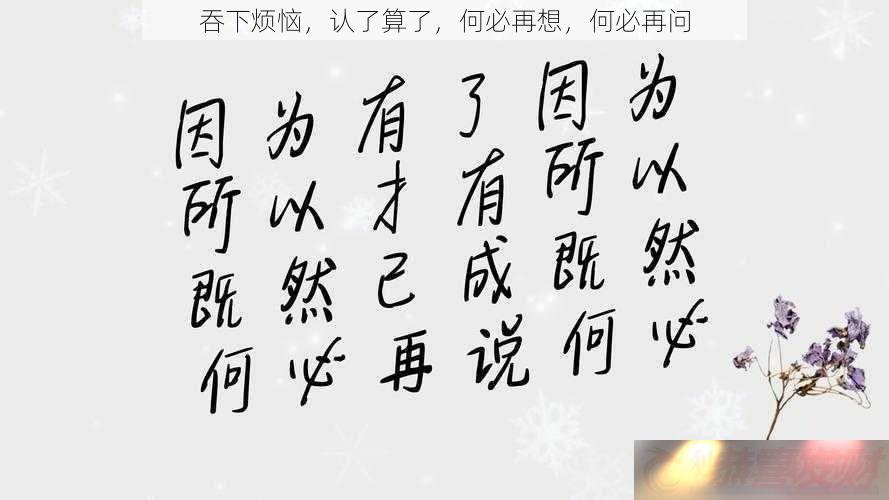 吞下烦恼，认了算了，何必再想，何必再问
因为有了因为
所以才有所以
既然已成既然
何必再说何必